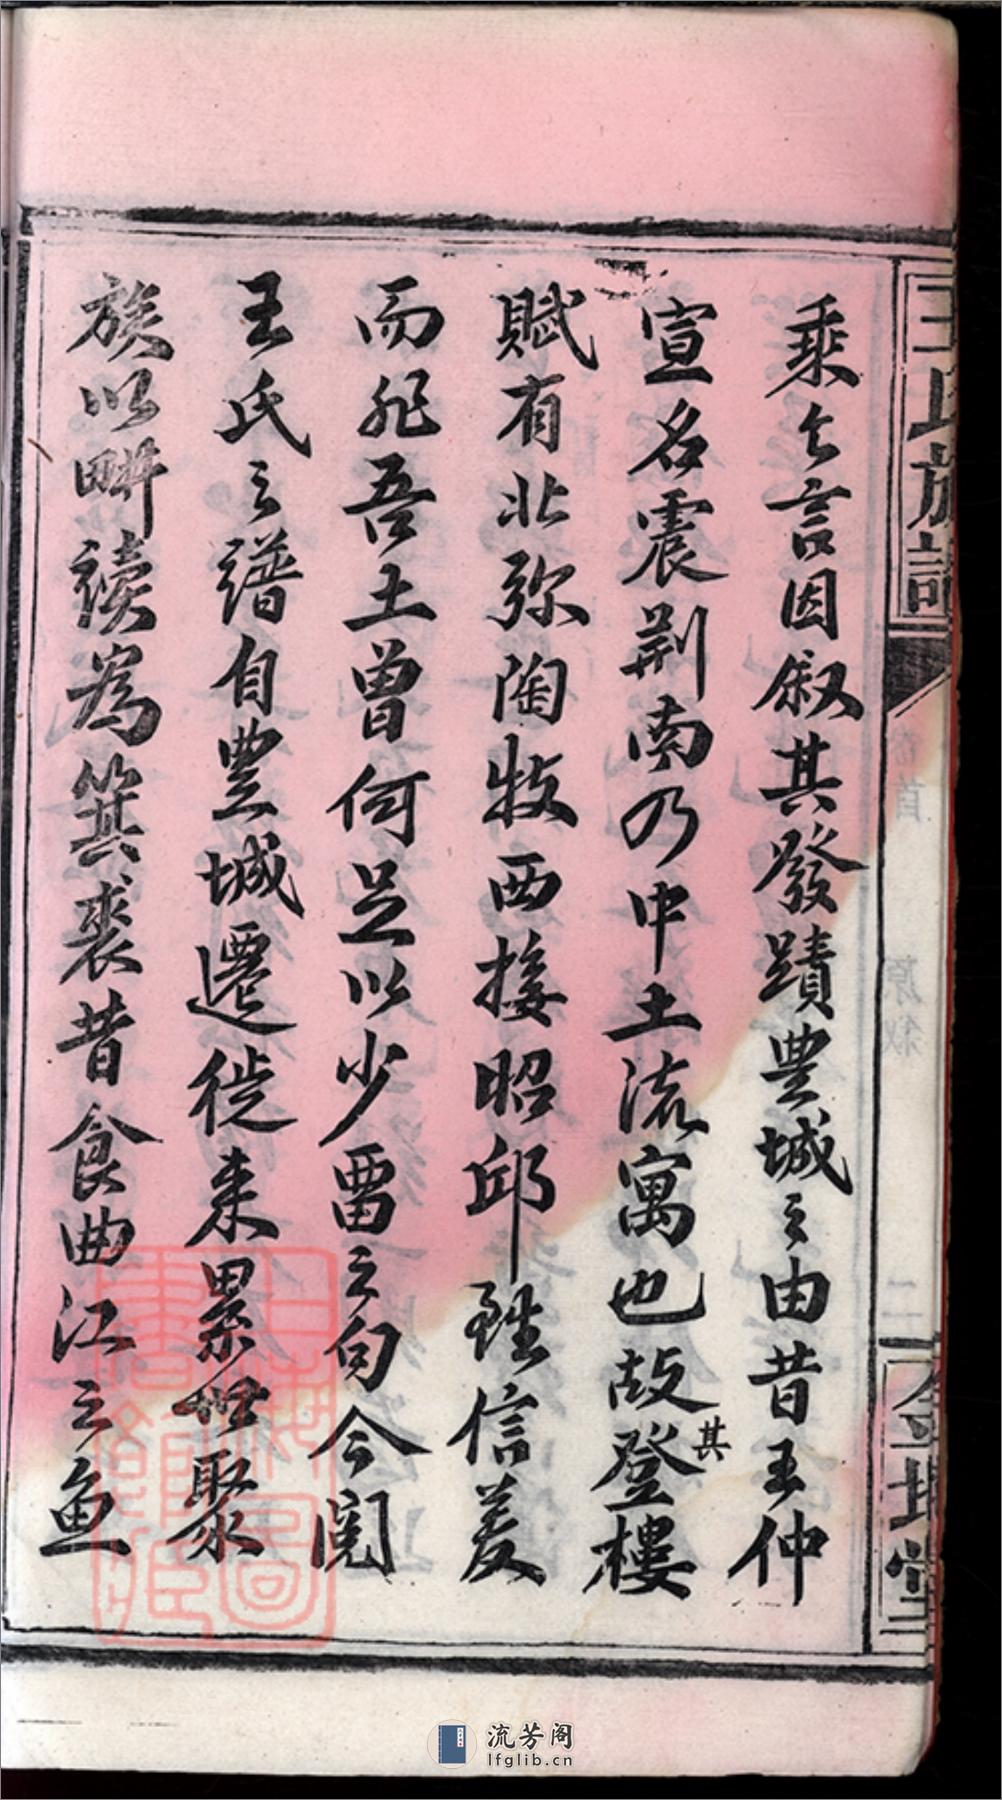 乘之言因叙其發蹟豊城之由昔王仲
宣名震荆南乃中土流寓也故其登樓
賦有北弥陶牧西接昭邱雖信美
而非吾土曽何足以少畱之句今閲
王氏之譜自豊城遷徙来累世聚
族以畊读為箕裘昔食曲江之魚
王氏族譜
卷首
原叙
二
堂
流芳阁
lfglib.cn